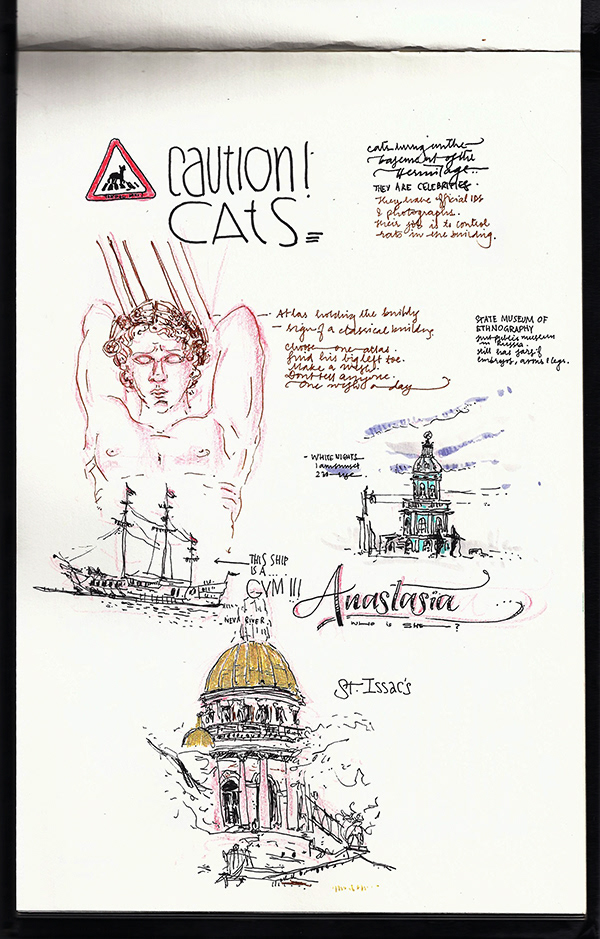 Caution!
CAtS
cats living in the
basement of the
Hermitage..
THEY ARE CELEBRITIES.
They have official IDs
& photographs.
their job is to control
rats in the building.
Atlas holding the
- sign of a classical building
choose one atlas.
find his biggest toe.
Make a wish.
Dont tell anyone.
One wish a day
STATE MUSEUM OF
ETHNOGRAPHY
first public museum
in Russia.
still has jars of
embryos, arms & legs.
- WHITE NIGHTS
1am sunset
THIS SHIP
IS A...
GYM!!!
NEVA RIVER
Anastasia
WHO IS SHE ?
St. Issac's